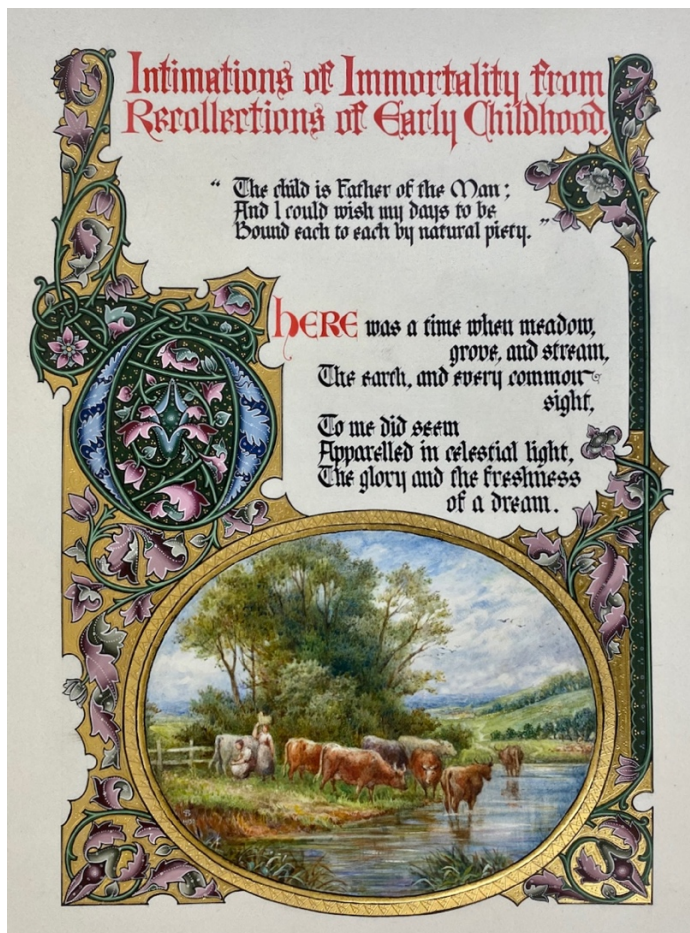 Intimations of Immortality from
Recollections of Early Childhood.
“ The child is Father of the Man ;
And I could wish my days to be
Bound each to each by natural piety. ”
THERE was a time when meadow,
grove, and stream,
The earth, and every common
sight,
To me did seem
Apparelled in celestial light,
The glory and the freshness
of a dream.